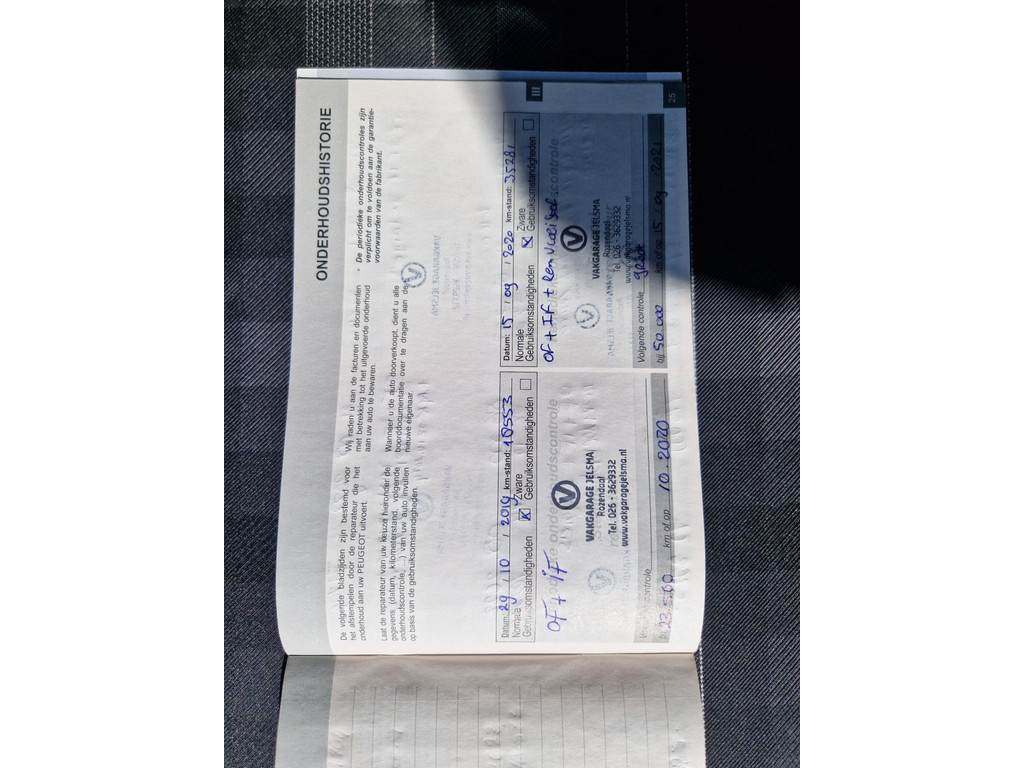 ONDERHOUDSHISTORIE
De volgende bladzijden zijn bestemd voor
het afstempelen door de reparateur die het
onderhoud aan uw PEUGEOT uitvoert.
Laat de reparateur van uw keuze hieronder de
gegevens (datum, kilometerstand, volgende
onderhoudscontrole, ...) van uw auto invullen
op basis van de gebruiksomstandigheden.
Wij raden u aan de facturen en documenten
met betrekking tot het uitgevoerde onderhoud
aan uw auto te bewaren.
Wanneer u de auto doorverkoopt, dient u alle
boorddocumentatie over te dragen aan de
nieuwe eigenaar.
* De periodieke onderhoudscontroles zijn
verplicht om te voldoen aan de garantie-
voorwaarden van de fabrikant.
Datum: 29 / 10 / 2019 km-stand: 18553
Normale Zware
Gebruiksomstandigheden Gebruiksomstandigheden
OF + IF
V
VAKGARAGE JELSMA
Rozendaal
Tel. 026 - 3629332
www.vakgaragejelsma.nl
Volgende controle
bij km of op 10.2020
Datum: 15 / 09 / 2020 km-stand: 35281
Normale Zware
Gebruiksomstandigheden Gebruiksomstandigheden
OF + IF + Remvloeistof
V
VAKGARAGE JELSMA
Rozendaal
Tel. 026 - 3629332
www.vakgaragejelsma.nl
Volgende controle groot
bij 50.000 km of op 15 09 2021
III
25